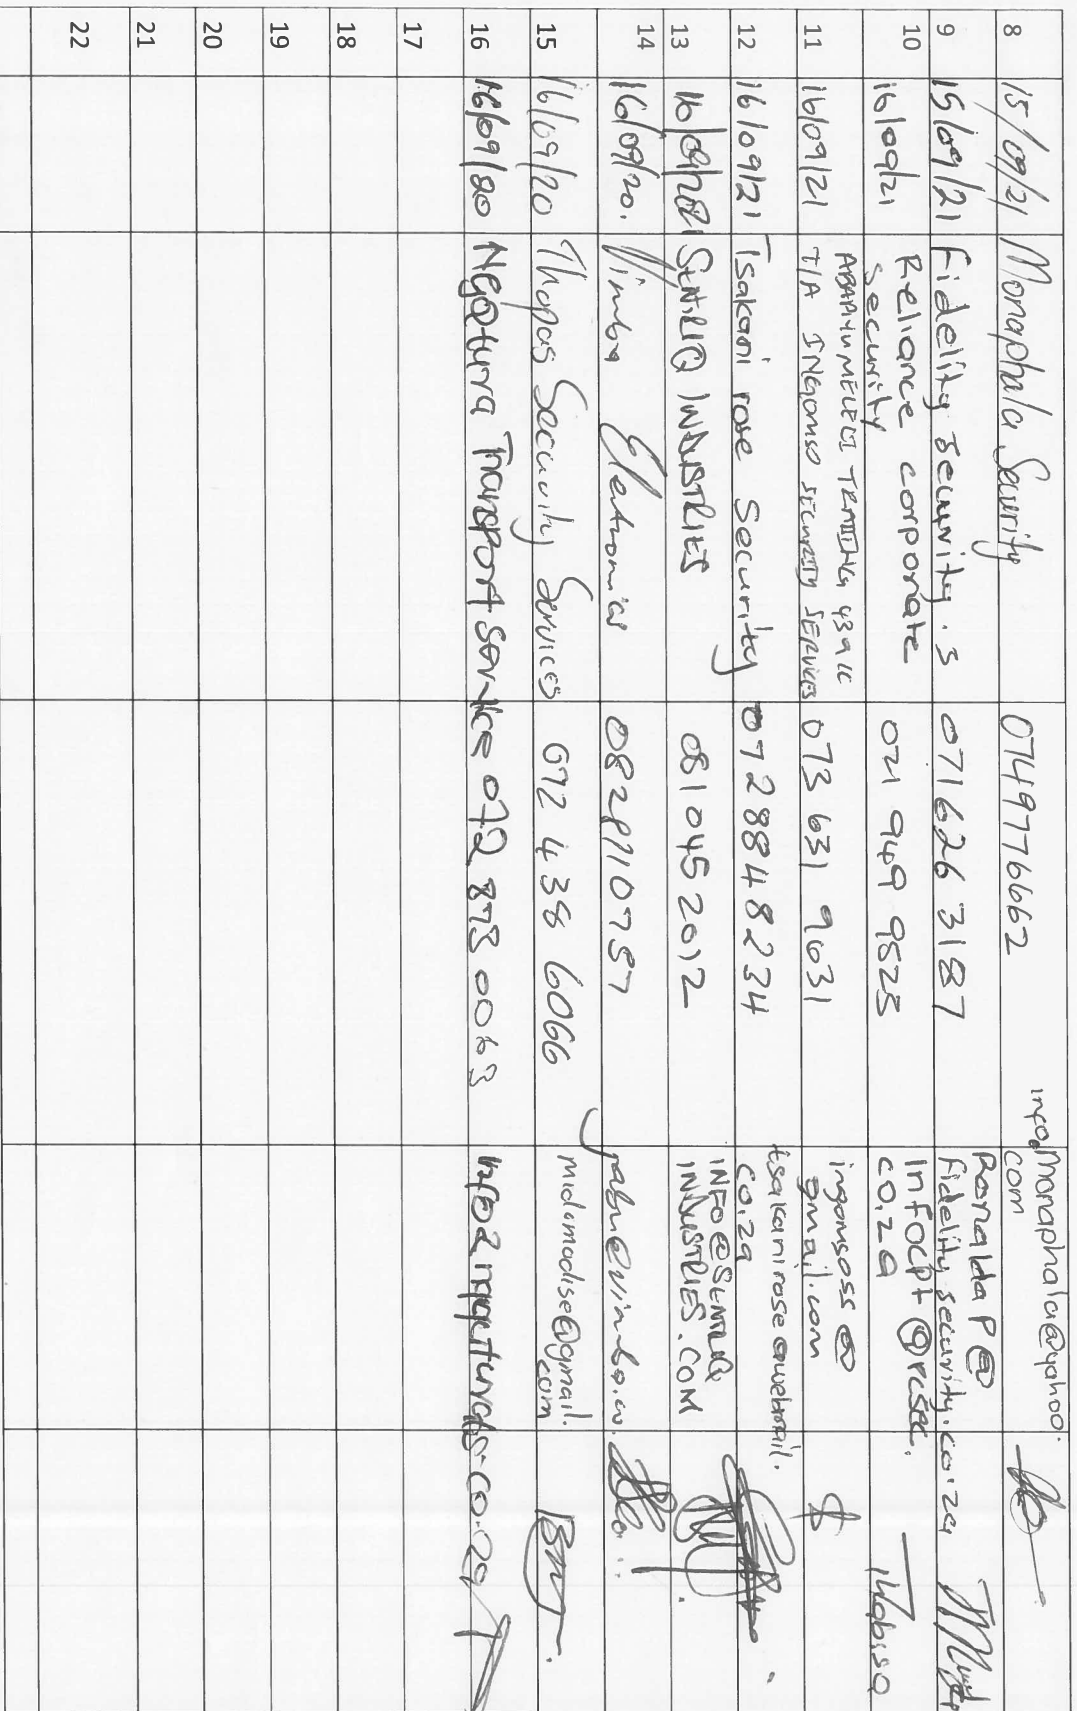 8 15/09/21 Monaphala Security 0749776662 info.monaphala@yahoo.
com
9 15/09/21 Fidelity Security.S 071626 3187 Ronalda P@
fidelity security.co.za
10 16/09/21 Reliance corporate 021 949 9523 Infocpt@rcsec.
Security co.za Thabisa
11 16/09/21 TRADING 439 CC
T/A INGOMSO SECURITY SERVICES 073 631 9631 ingomsoss@
gmail.com
12 16/09/21 Tsakani rose Security 0728848234 tsakanirose@webmail.
co.za
13 SENTRIQ INDUSTRIES 081 045 2012 INFO@SENTRIQ
INDUSTRIES.COM
14 16/09/20. Vimba Electronics
15 16/09/20 Thopas Security Services 072 438 6066 midamodise@gmail.
com
16 Transport Services 072 873 0063
17
18
19
20
21
22